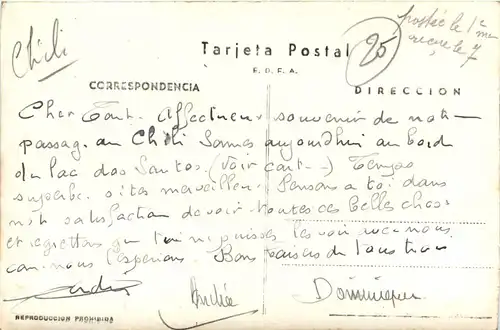 Chili
postée le 1e
reçue le 7
25
Tarjeta Postal
E. D. F. A.
CORRESPONDENCIA
DIRECCION
Cher Affectueux souvenir de notre
passage au Chili Sommes aujourdhui au bord
du lac dos Santos (voir carte) Temps
superbe sites merveilleux Pensons a toi dans
notre satisfaction de voir toutes ces belles choses
et regrettons que tu ne puisses les voir avec nous
comme nous l'esperions. Bons baisers de
Andrée
Dominique
REPRODUCCION PROHIBIDA